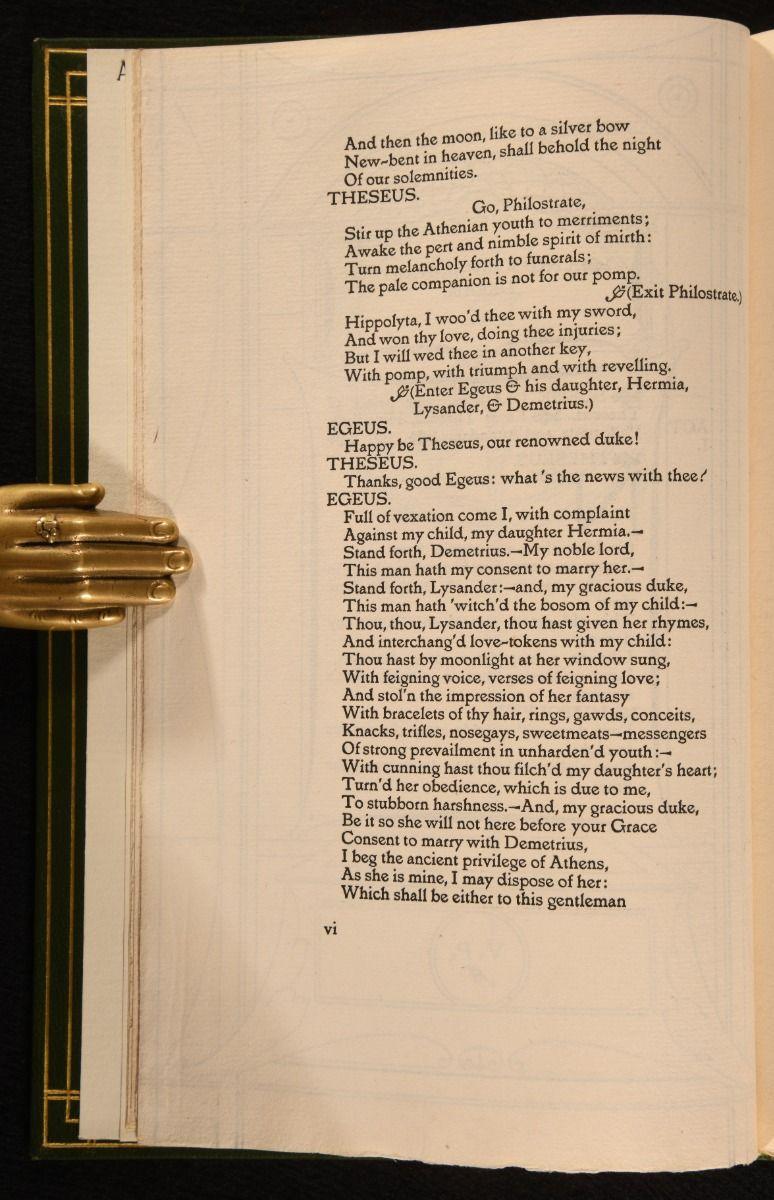 A
And then the moon, like to a silver bow
New-bent in heaven, shall behold the night
Of our solemnities.
THESEUS.
Go, Philostrate,
Stir up the Athenian youth to merriments;
Awake the pert and nimble spirit of mirth:
Turn melancholy forth to funerals;
The pale companion is not for our pomp.
(Exit Philostrate.)
Hippolyta, I woo'd thee with my sword,
And won thy love, doing thee injuries;
But I will wed thee in another key,
With pomp, with triumph and with revelling.
(Enter Egeus & his daughter, Hermia,
Lysander, & Demetrius.)
EGEUS.
Happy be Theseus, our renowned duke!
THESEUS.
Thanks, good Egeus: what 's the news with thee?
EGEUS.
Full of vexation come I, with complaint
Against my child, my daughter Hermia.—
Stand forth, Demetrius.—My noble lord,
This man hath my consent to marry her.—
Stand forth, Lysander:—and, my gracious duke,
This man hath 'witch'd the bosom of my child:—
Thou, thou, Lysander, thou hast given her rhymes,
And interchang'd love-tokens with my child:
Thou hast by moonlight at her window sung,
With feigning voice, verses of feigning love;
And stol'n the impression of her fantasy
With bracelets of thy hair, rings, gawds, conceits,
Knacks, trifles, nosegays, sweetmeats—messengers
Of strong prevailment in unharden'd youth:—
With cunning hast thou filch'd my daughter's heart;
Turn'd her obedience, which is due to me,
To stubborn harshness.—And, my gracious duke,
Be it so she will not here before your Grace
Consent to marry with Demetrius,
I beg the ancient privilege of Athens,
As she is mine, I may dispose of her:
Which shall be either to this gentleman
vi